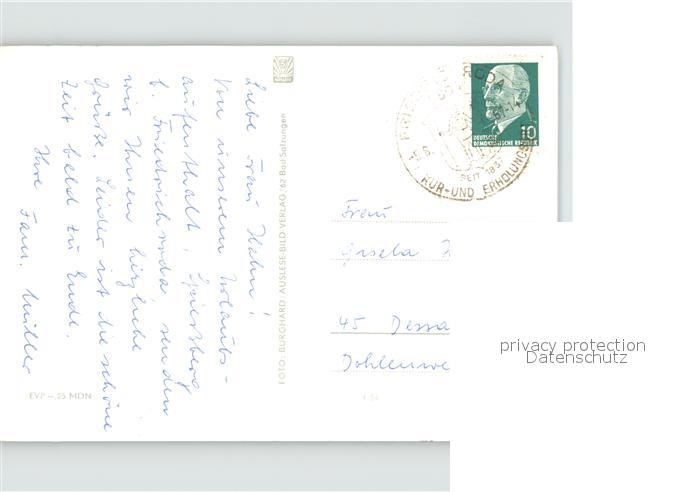 Liebe Frau Hahn!
Von unserem Urlaubs-
aufenthalt, Spießberg
b. Friedrichroda senden
wir Ihnen herzliche
Grüße. Leider ist die schöne
Zeit bald zu Ende.
Ihre Fam. Müller
EVP –,25 MDN
FOTO: BURGHARD AUSLESE-BILD-VERLAG '62 Bad Salzungen
SEIT 1837
KUR- UND ERHOLUNGS
10
DEUTSCHE
DEMOKRATISCHE REPUBLIK
Frau
Gisela
45 Dessa
Dohlenwe
privacy protection
Datenschutz